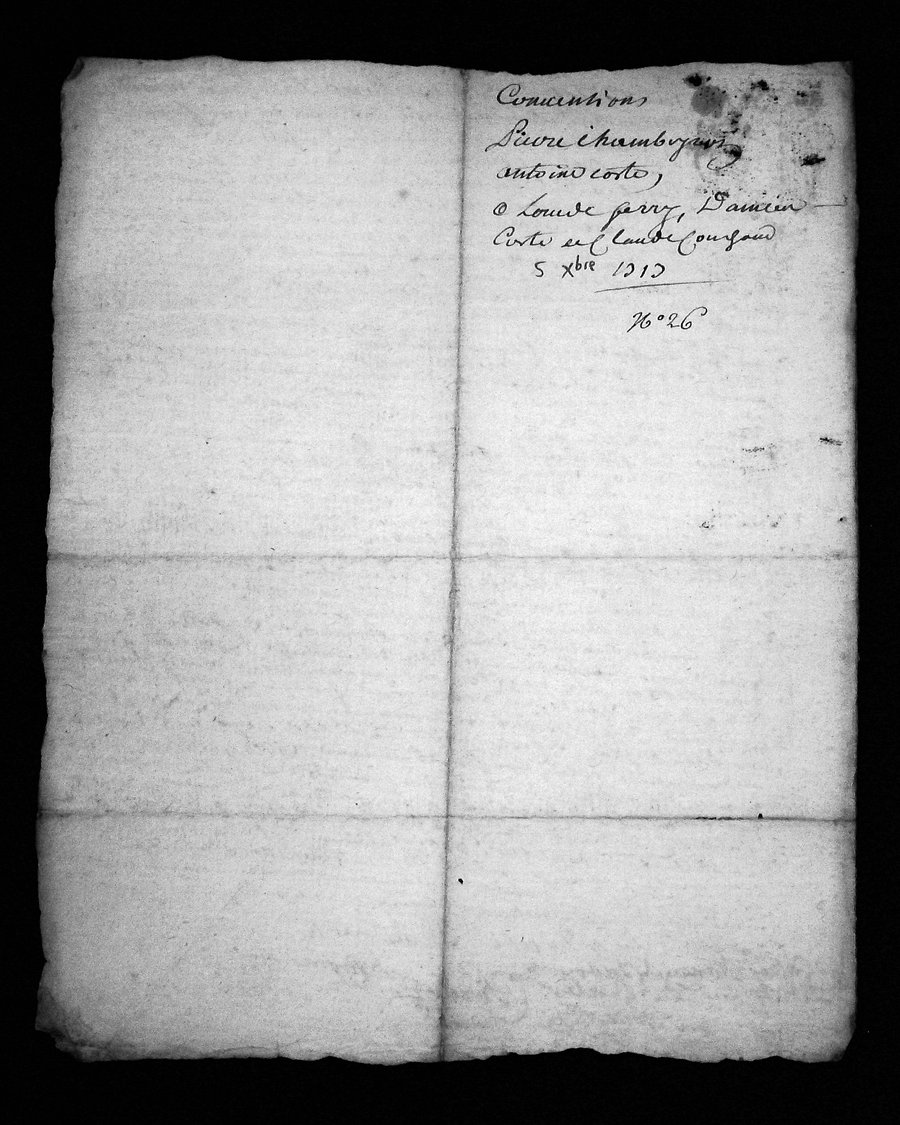 Conventions
Pierre Chambeyron
antoine coste,
Claude ferry, Damien
Coste et Claude
5 Xbre
N° 26